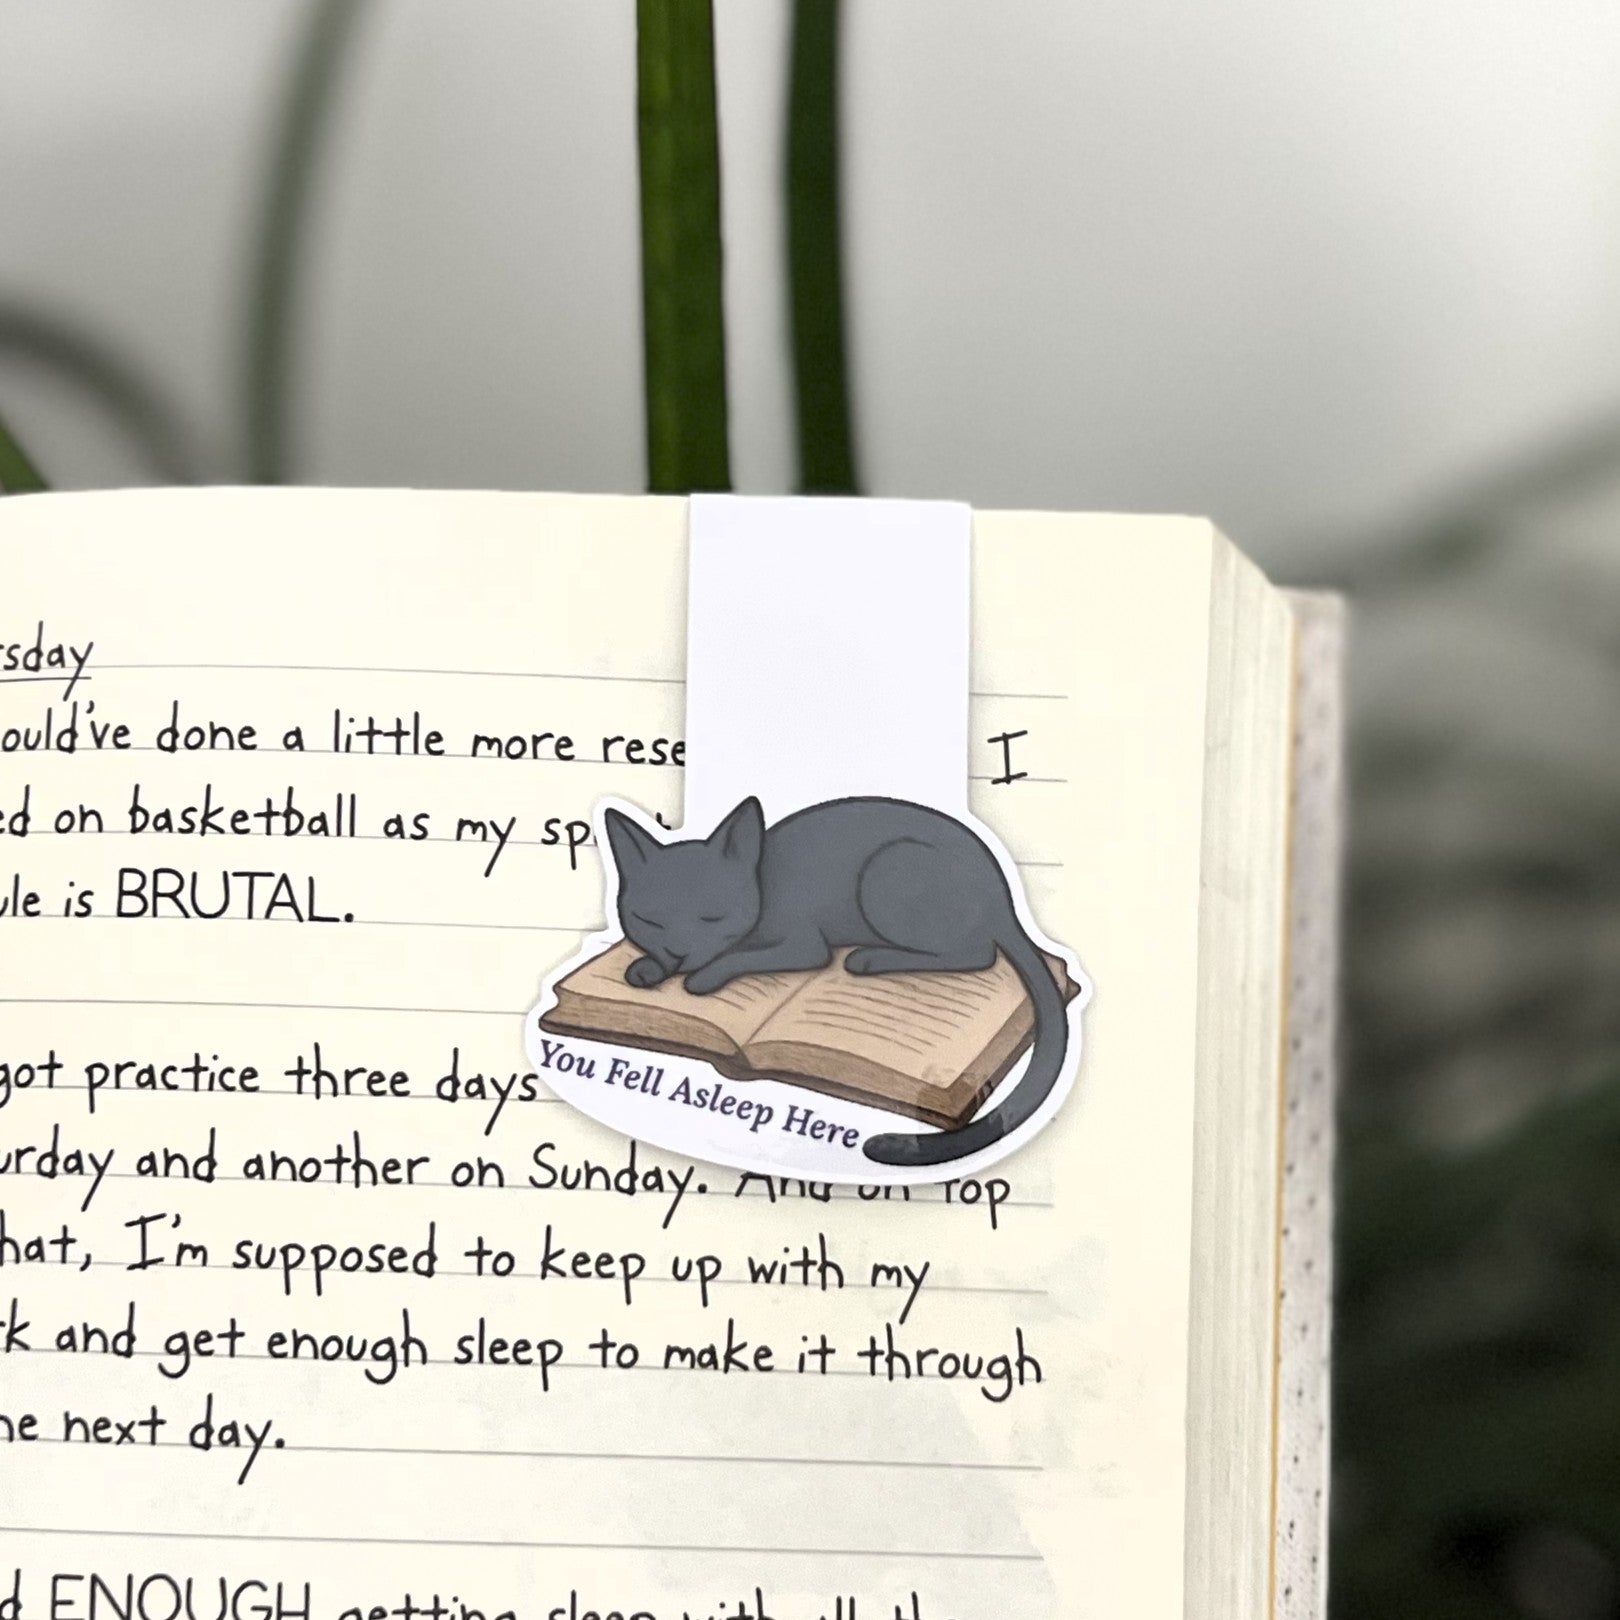 sday
ould've done a little more rese I
ed on basketball as my sp
le is BRUTAL.
You Fell Asleep Here
got practice three days
urday and another on Sunday. And on top
hat, I'm supposed to keep up with my
k and get enough sleep to make it through
he next day.
d ENOUGH getting sleep with all th